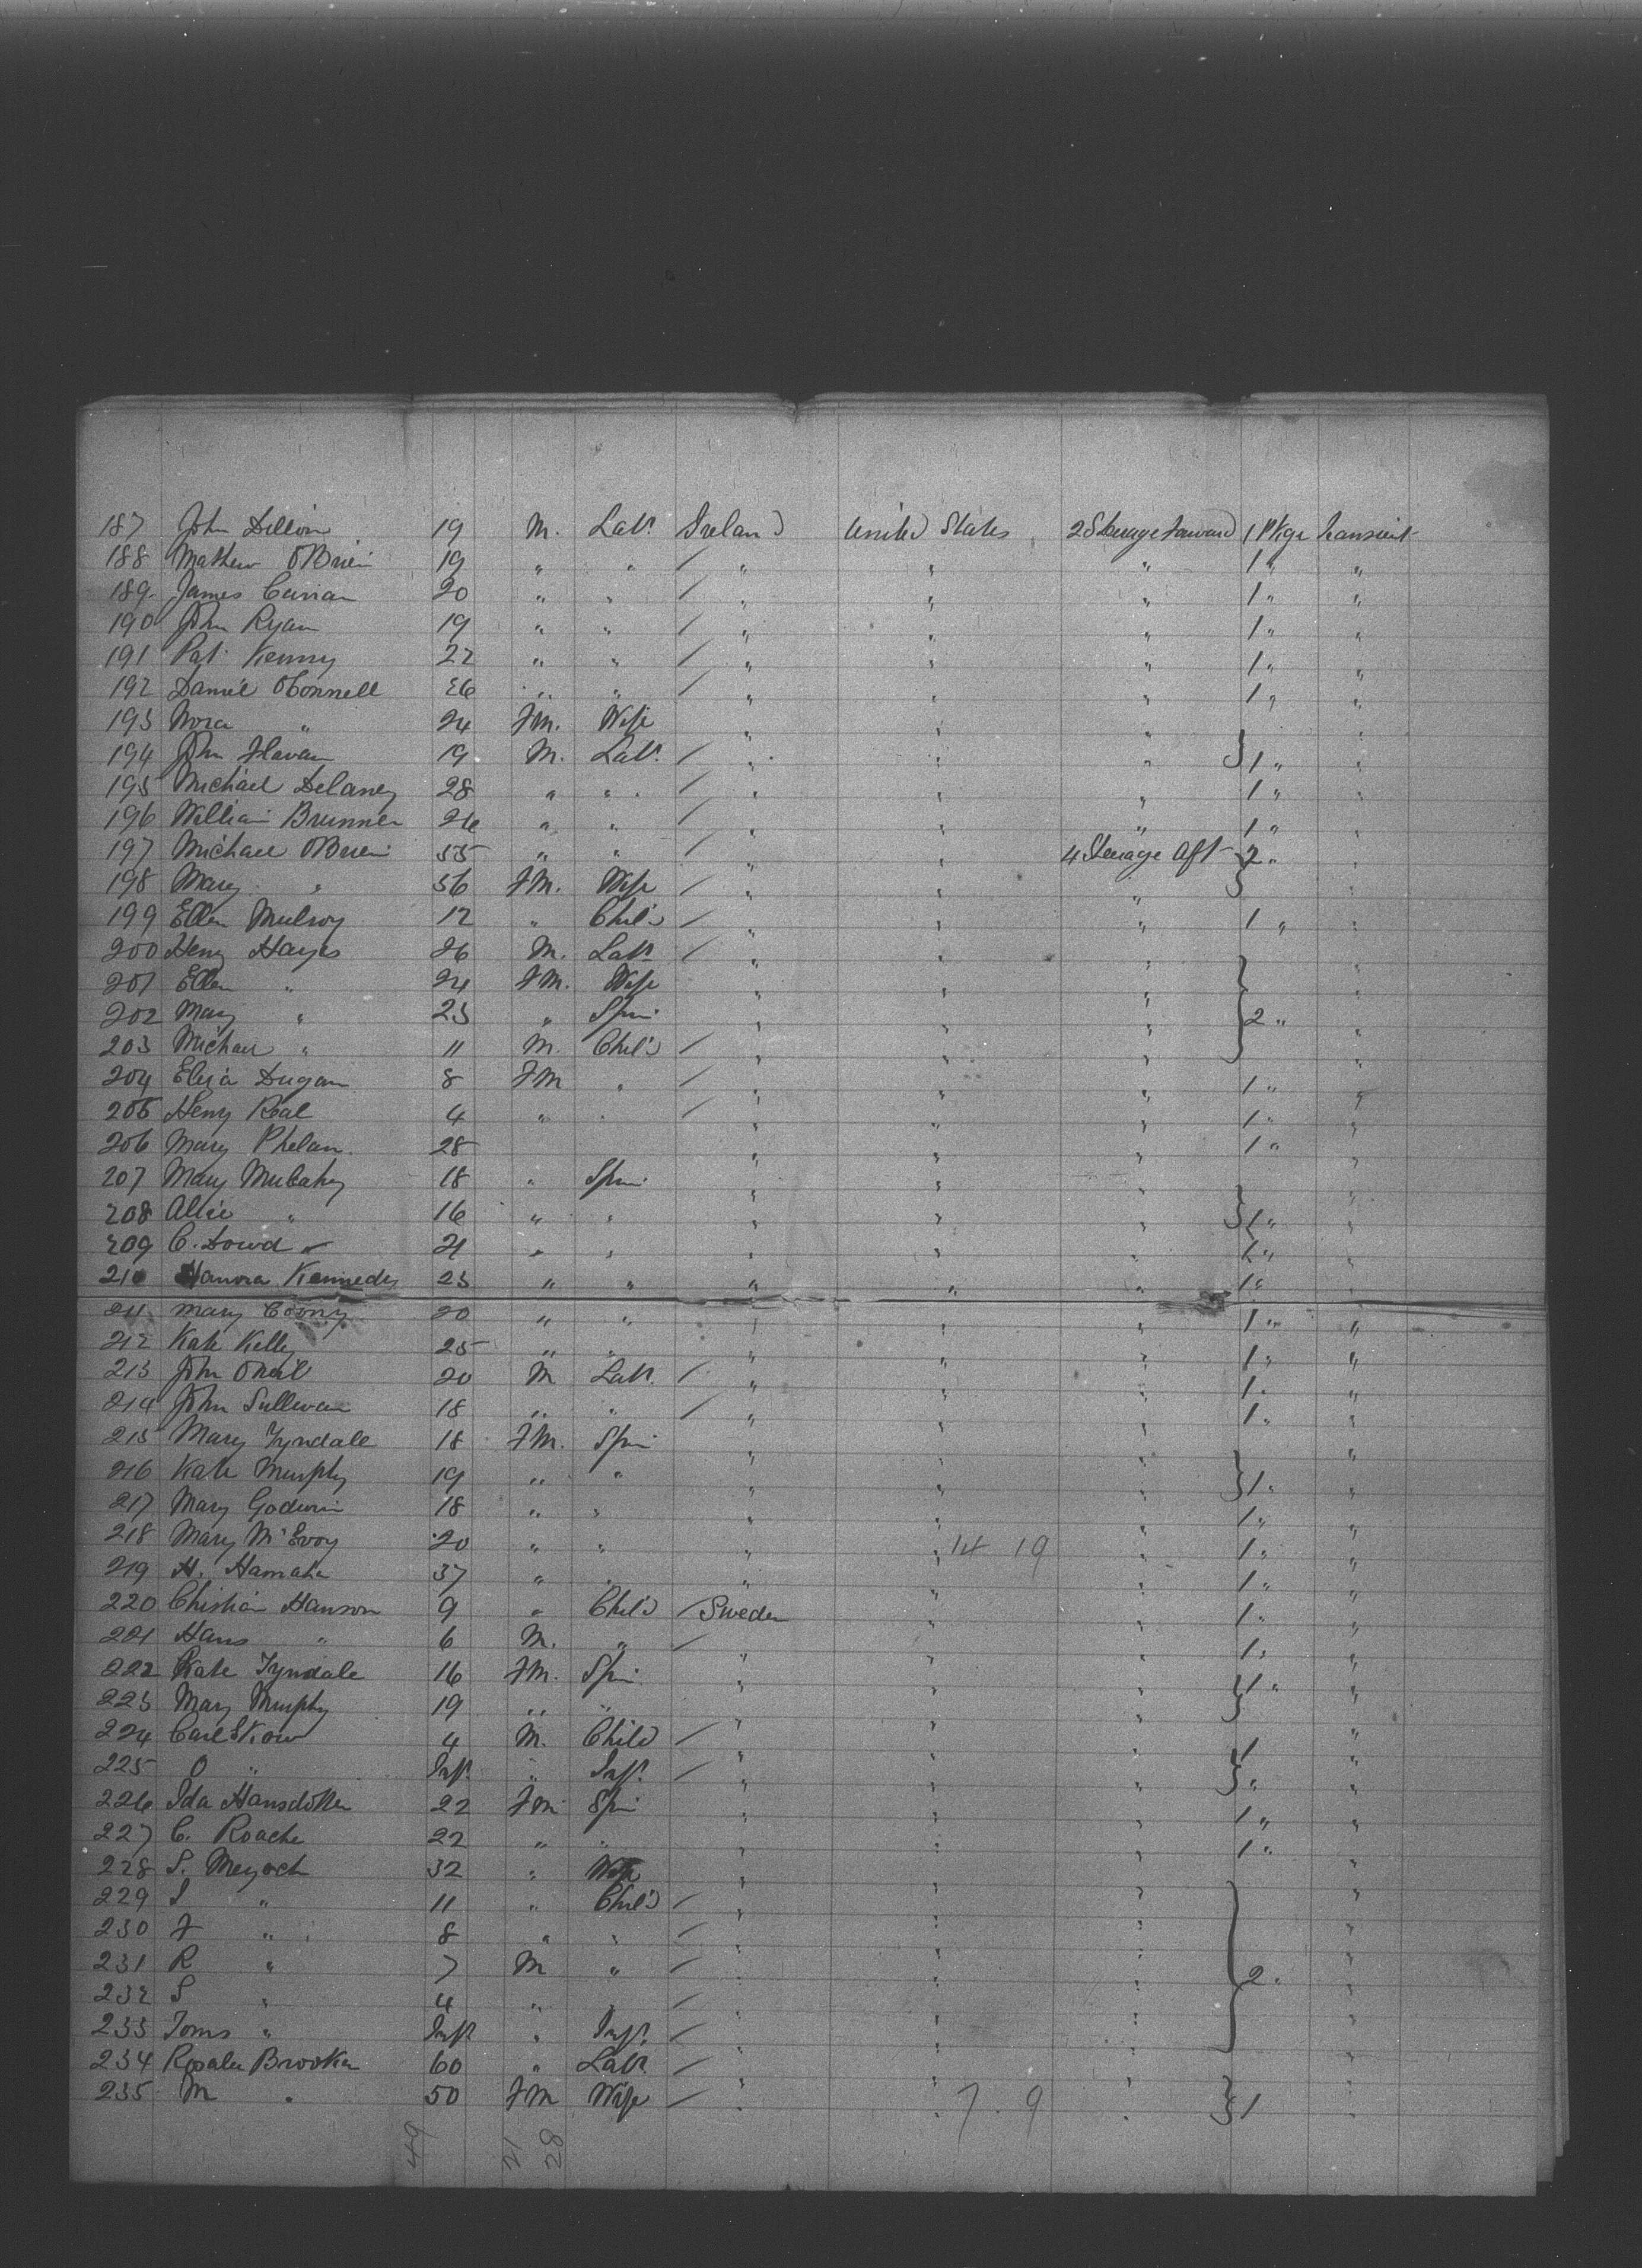 187 John Dillon 19 M. Labr Ireland United States 2 Steerage Forward 1 Pkge Transient
188 Mathew OBrien 19 " " / " " " 1 " "
189. James Curran 20 " " / " " " 1 " "
190 John Ryan 19 " " / " " " 1 " "
191 Pat Kenny 22 " " / " " " 1 " "
192 Daniel OConnell 26 " " / " " " 1 " "
193 Nora " 24 FM. Wife " " "
194 John Flavan 19 M. Labr / " " " } 1 " "
195 Michael Delaney 28 " " / " " " 1 " "
196 William Brunner 26 " " / " " " 1 " "
197 Michael OBrien 55 " " / " " 4 Steerage Aft 2 " "
198 Mary " 56 FM. Wife / " " " } "
199 Ellen Mulroy 12 " Child / " " " 1 " "
200 Henry Hayes 26 M. Labr / " " " "
201 Ellen " 24 FM. Wife " " " "
202 Mary " 23 " Spin " " " } 2 " "
203 Michael " 11 M. Child / " " " "
204 Eliza Dugan 8 FM " / " " " 1 " "
205 Henry Real 4 " " / " " " 1 " "
206 Mary Phelan 28 " " " 1 " "
207 Mary Mulcahy 18 " Spin " " " "
208 Alice " 16 " " " " " } 1 " "
209 C. Dowd " 21 " " " " " 1 " "
210 Hanora Kennedy 23 " " " " " 1 " "
211 Mary Coony 20 " " " " " 1 " "
212 Kate Kelly 25 " " " " " 1 " "
213 John ONeil 20 M Labr / " " " 1 " "
214 John Sullivan 18 " " / " " " 1 " "
215 Mary Tyndale 18 FM. Spin " " " "
216 Kate Murphy 19 " " " " " } 1 " "
217 Mary Godwin 18 " " " " " 1 " "
218 Mary McEvoy 20 " " " " 14 19 " 1 " "
219 H. Hamaha 37 " " " " " 1 " "
220 Christian Hanson 9 " Child / Sweden " " 1 " "
221 Hans " 6 M. " / " " " 1 " "
222 Kate Tyndale 16 FM. Spin " " " } 1 " "
223 Mary Murphy 19 " " " " "
224 Carl Skow 4 M. Child / " " " 1 "
225 O " Inft " Inft / " " " } " "
226 Ida Hansdotter 22 FM Spin " " " 1 " "
227 C. Roache 22 " " " " " 1 " "
228 S. Meyoch 32 " Wife " " " "
229 I " 11 " Child / " " " "
230 F " 8 " " / " " " "
231 R " 7 M " / " " " } 2 " "
232 S " 4 " " / " " " "
233 Toms " Inft " Inft / " " " "
234 Rosalu Brooker 60 " Labr / " " " "
235 M " 50 FM Wife / " " 7 . 9 " } 1 "
49 21 28